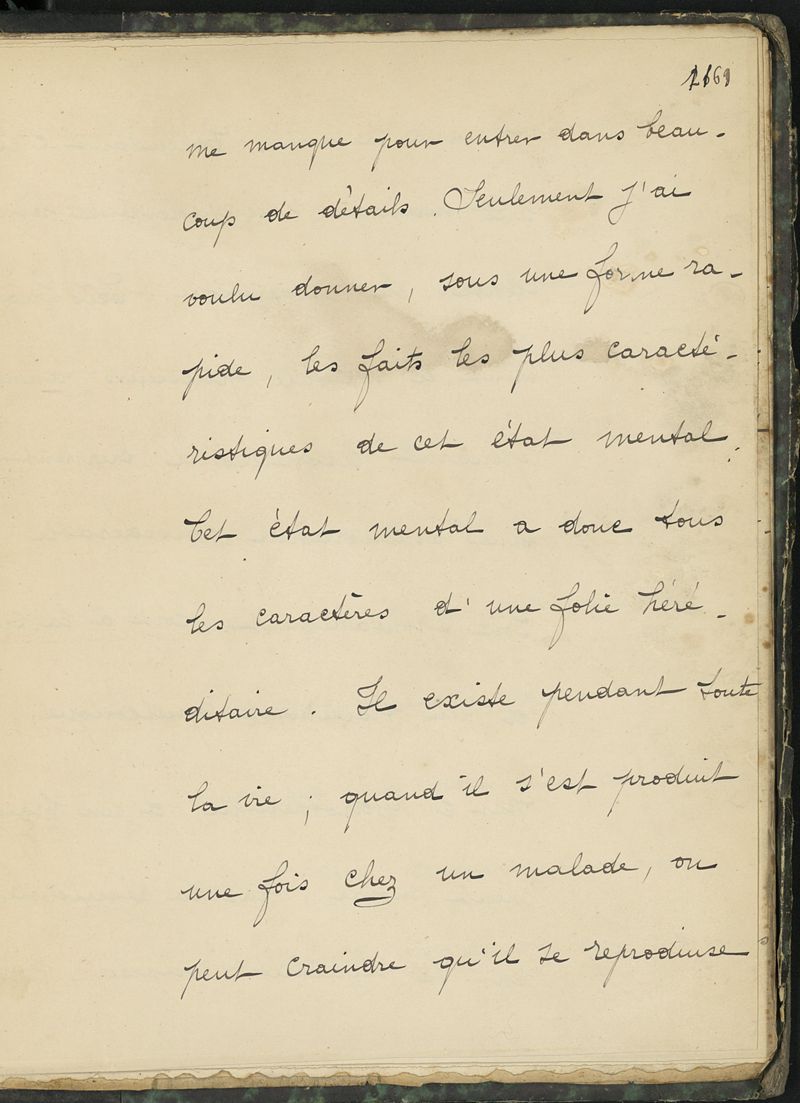 me manque pour entrer dans beau-
coup de détails. Seulement j'ai
voulu donner, sous une forme ra-
pide, les faits les plus caracté-
ristiques de cet état mental.
Cet état mental a donc tous
les caractères d'une folie héré-
ditaire. Il existe pendant toute
la vie ; quand il s'est produit
une fois chez un malade, on
peut craindre qu'il se reproduise